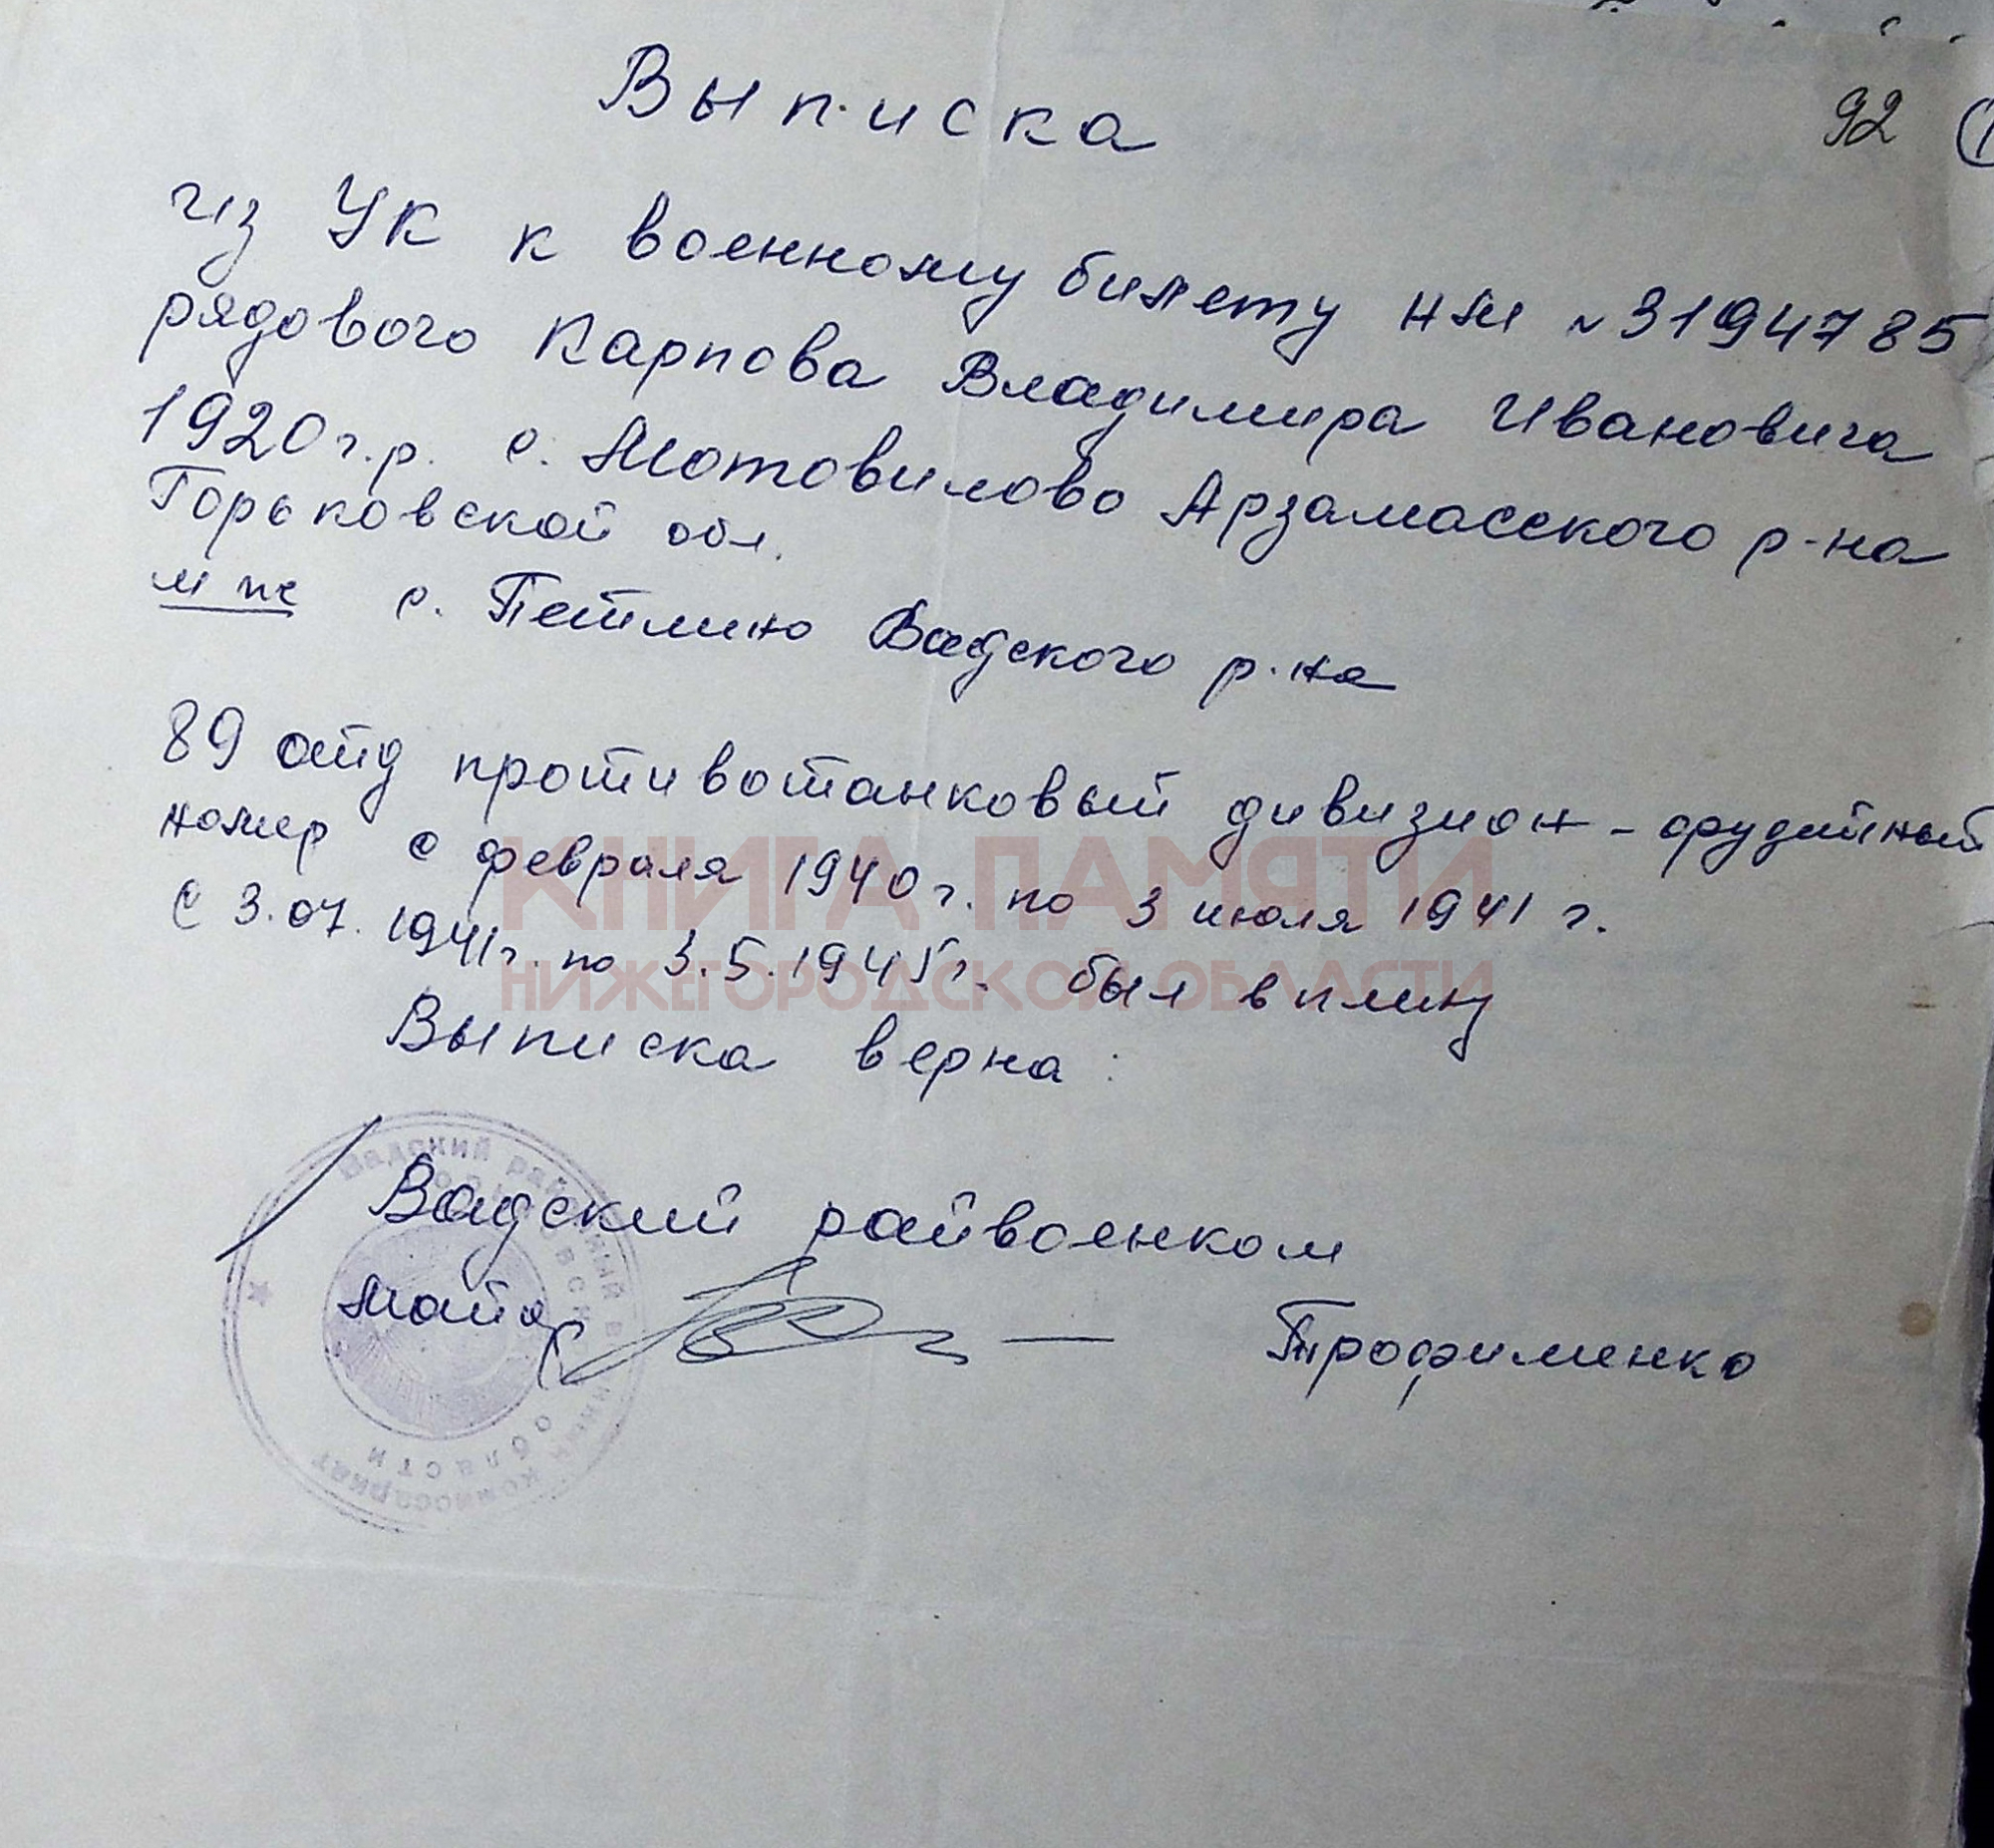 92
Выписка
из УК к военному билету НМ №3194785
рядового Карпова Владимира Ивановича
1920 г.р. с. Мотовилово Арзамасского р-на
Горьковской обл.
м ж с. Петлино Вадского р-на
89 оптд противотанковый дивизион - орудийный
номер с февраля 1940 г. по 3 июля 1941 г.
С 3.07. 1941г. по 3.5.1945г. был в плену
КНИГА ПАМЯТИ
НИЖЕГОРОДСКОЙ ОБЛАСТИ
Выписка верна:
Вадский райвоенком
майор — Трофименко
Вадский районный военный комиссариат
области